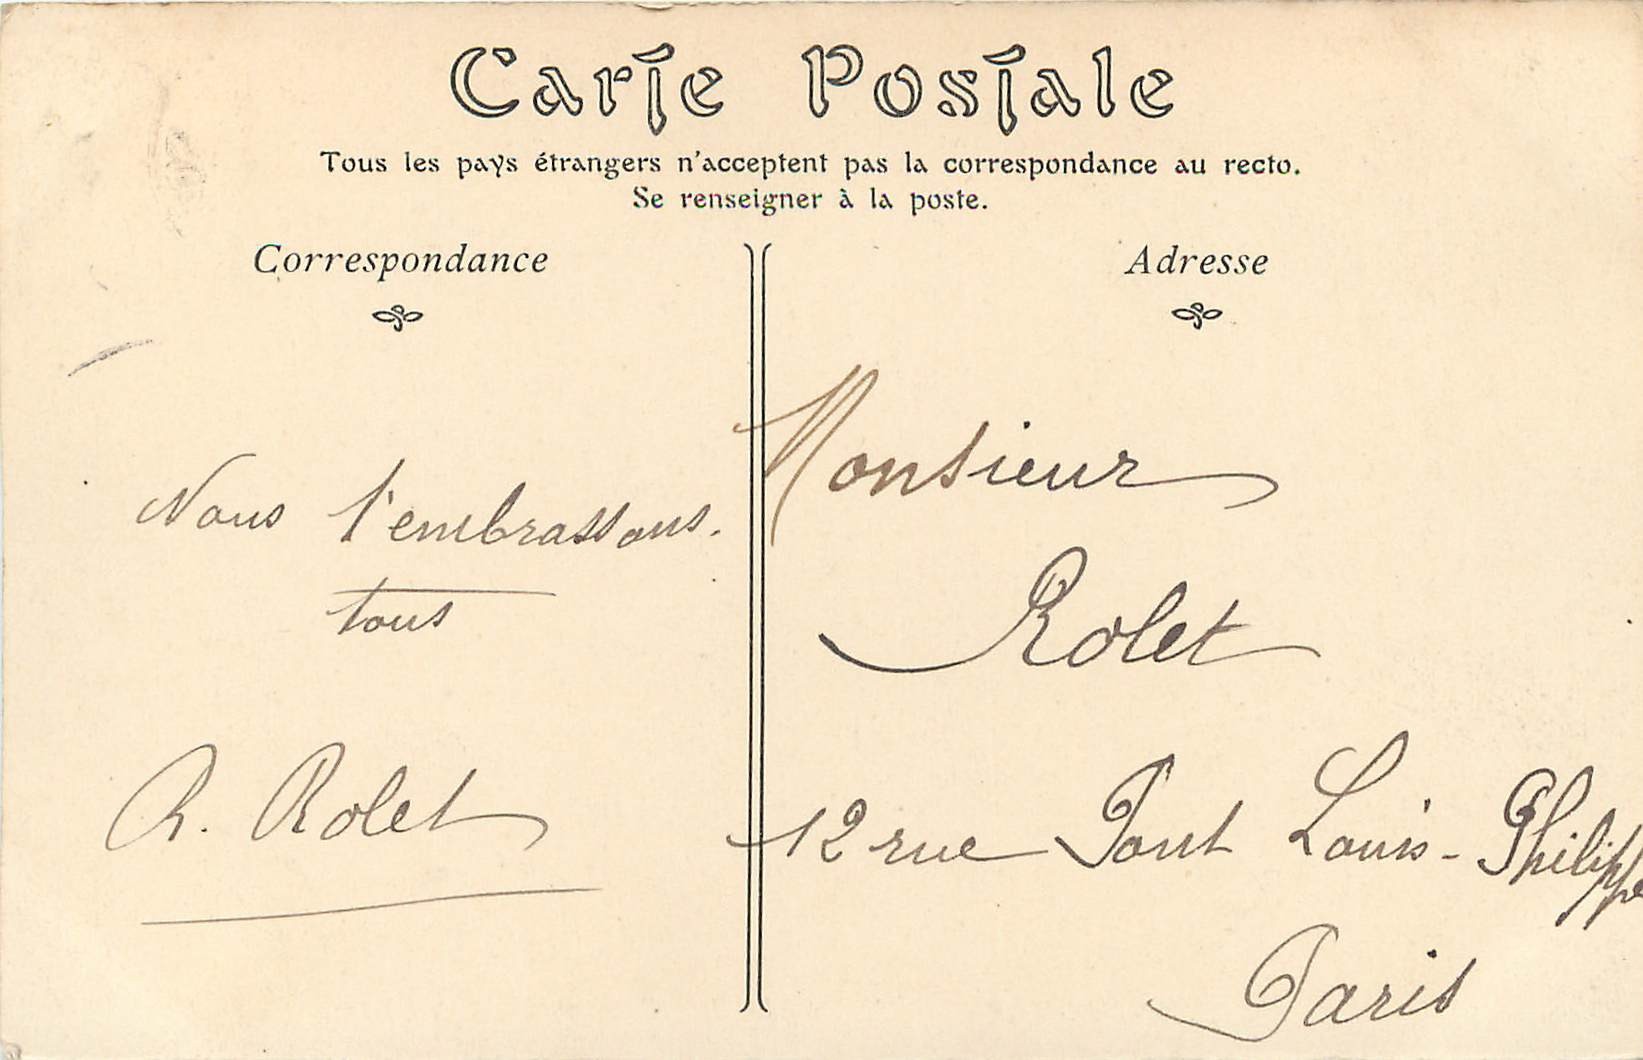 Carte Postale
Tous les pays étrangers n'acceptent pas la correspondance au recto.
Se renseigner à la poste.
Correspondance
Nous t'embrassons.
tous
R. Rolet
Adresse
Monsieur
Rolet
12 rue Pont Louis-Philippe
Paris